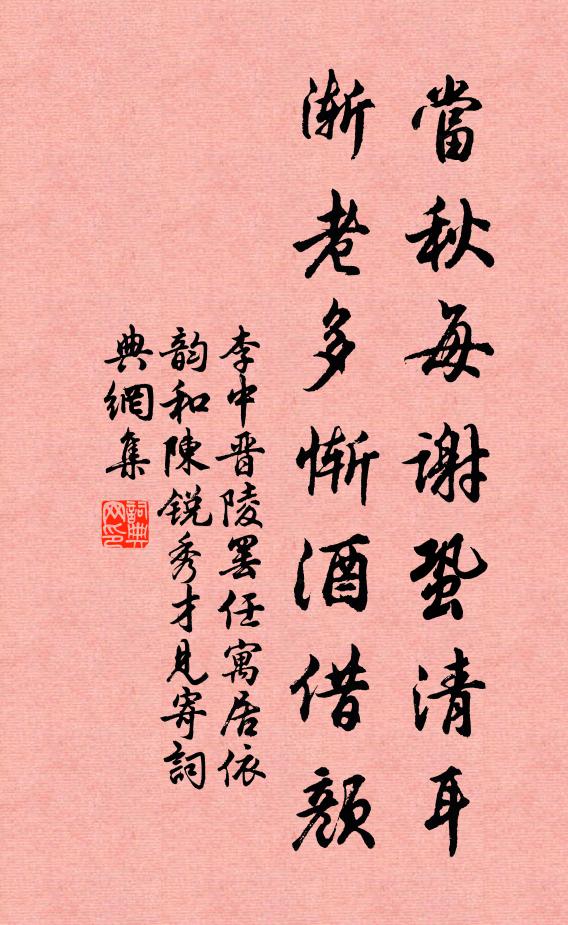 當秋每謝蛩清耳
漸老多慚酒借顏
李中晋陵罢任寓居依
韵和陳锐秀才見寄詞
典網集
詞典
网印